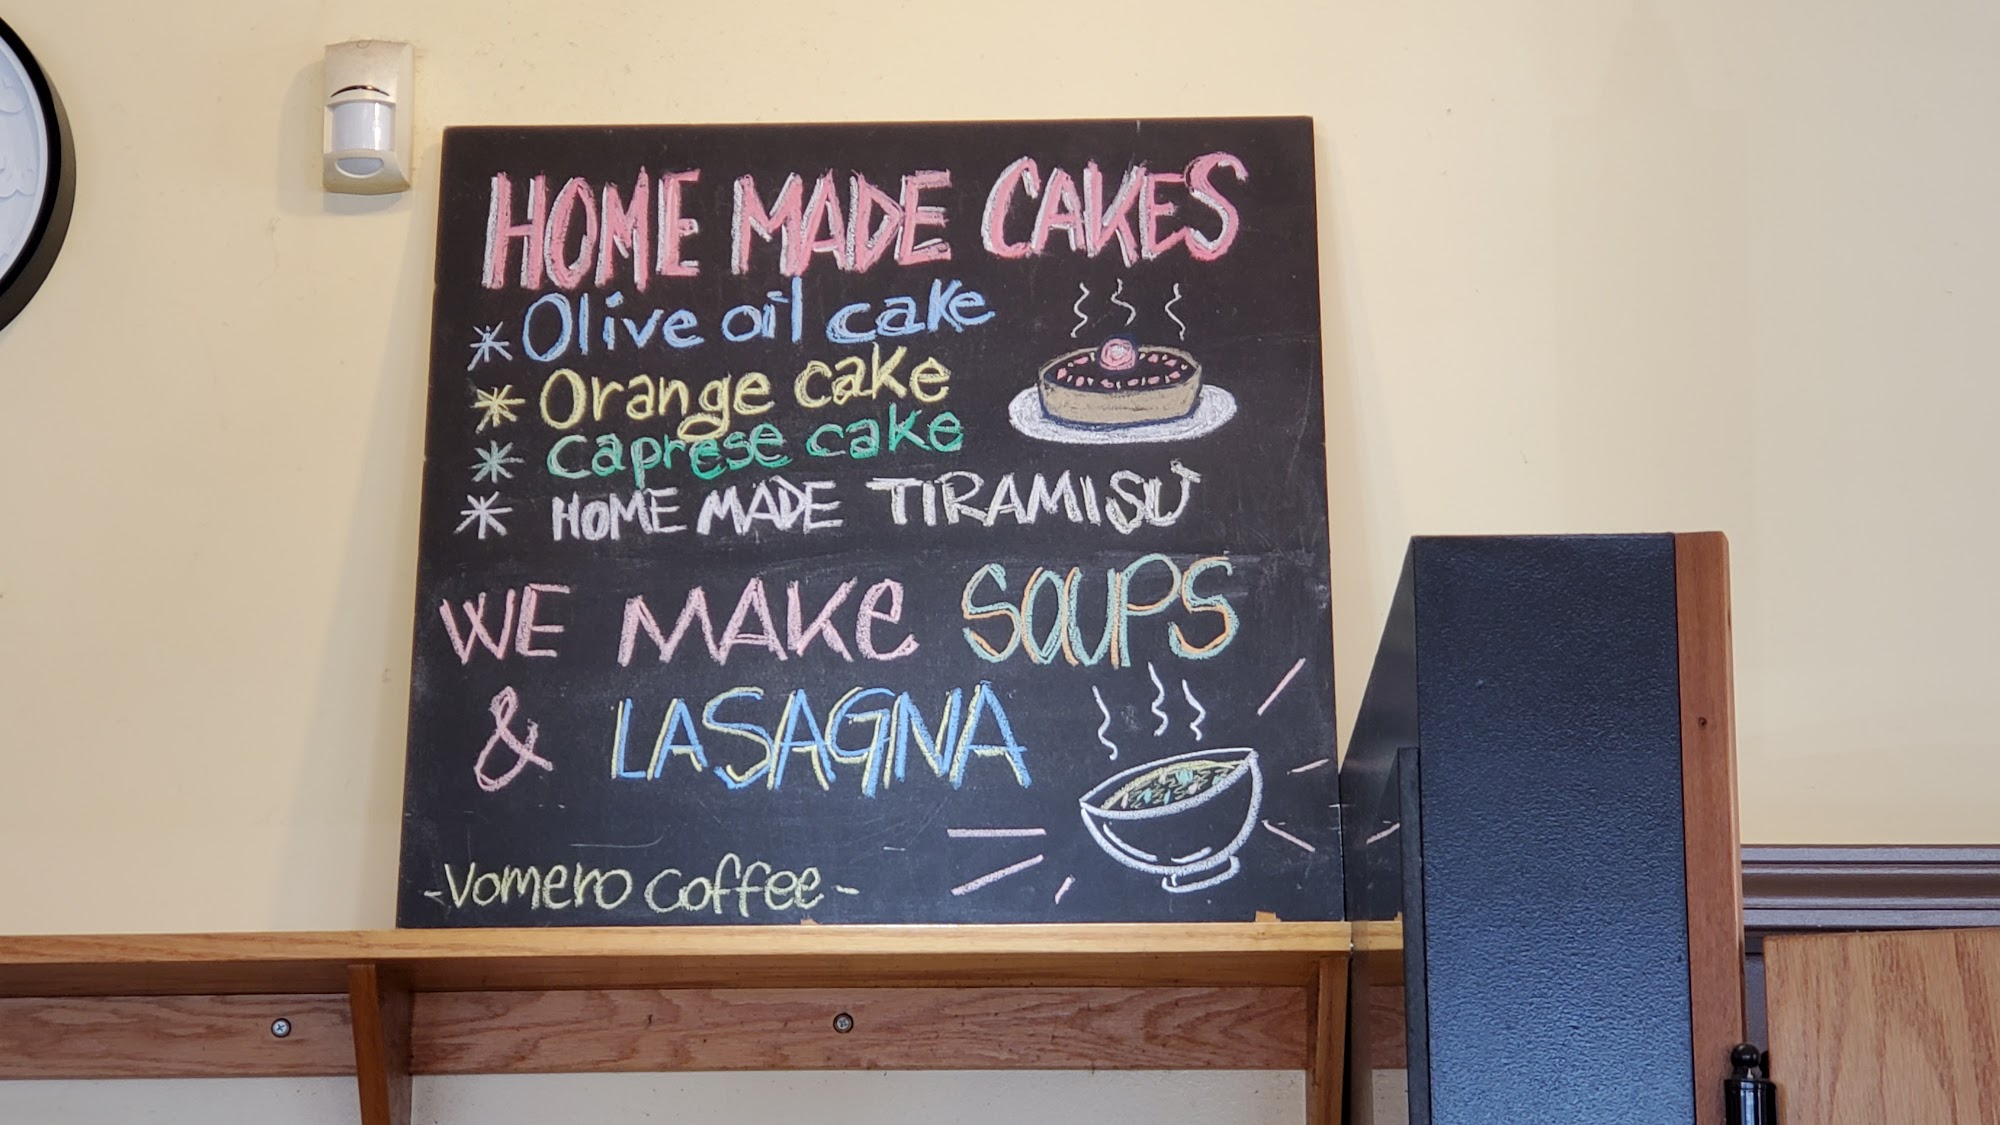 HOME MADE CAKES
* Olive oil cake
* Orange cake
* caprese cake
* HOME MADE TIRAMISÙ
WE MAKe SOUPS
& LASAGNA
-Vomero coffee-